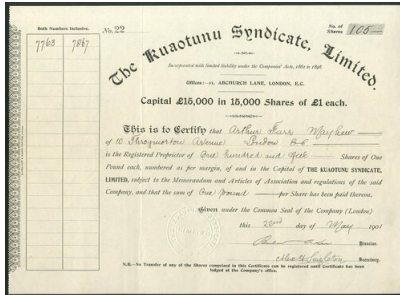 Both Numbers Inclusive.
No. 22
No. of Shares 105
7763 7867
The Kuaotunu Syndicate, Limited.
Incorporated with limited liability under the Companies' Acts, 1862 to 1898.
Offices:—11, ABCHURCH LANE, LONDON, E.C.
Capital £15,000 in 15,000 Shares of £1 each.
This is to Certify that Arthur Mayhew
of 10 Throgmorton Avenue London E.C.
is the Registered Proprietor of One hundred and five Shares of One
Pound each, numbered as per margin, of and in the Capital of THE KUAOTUNU SYNDICATE,
LIMITED, subject to the Memorandum and Articles of Association and regulations of the said
Company, and that the sum of One pound per Share has been paid thereon.
Given under the Common Seal of the Company (London)
this 22nd day of May 1901
Director.
Secretary.
N.B.—No Transfer of any of the Shares comprised in this Certificate can be registered until Certificate has been
lodged at the Company's office.